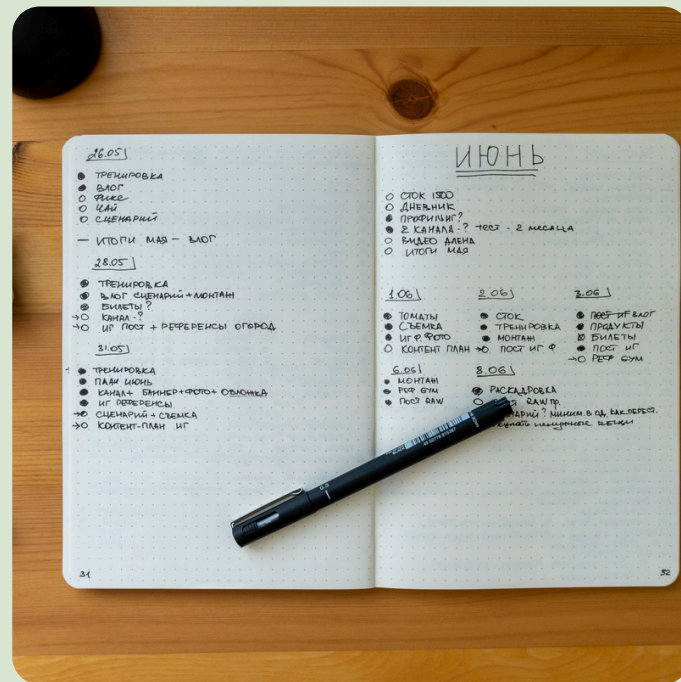 26.05
ТРЕНИРОВКА
ВЛОГ
ФИКС
ЧАЙ
СЦЕНАРИЙ
— ИТОГИ МАЯ — ВЛОГ
28.05
ТРЕНИРОВКА
ВЛОГ СЦЕНАРИЙ + МОНТАЖ
БИЛЕТЫ?
→ КАНАЛ - ?
→ ИГ ПОСТ + РЕФЕРЕНСЫ ОГОРОД
31.05
ТРЕНИРОВКА
ПЛАН ИЮНЬ
КАНАЛ + БАННЕР + ФОТО + ОБЛОЖКА
ИГ РЕФЕРЕНСЫ
→ СЦЕНАРИЙ + СЪЕМКА
→ КОНТЕНТ-ПЛАН ИГ
31
ИЮНЬ
СТОК 1500
ДНЕВНИК
ПРОФИЛЬНГ?
2 КАНАЛА - ? ТЕСТ - 2 МЕСЯЦА
ВИДЕО АЛЕНА
ИТОГИ МАЯ
1.06
ТОМАТЫ
СЪЕМКА
ИГ Ф. ФОТО
КОНТЕНТ ПЛАН
2.06
СТОК
ТРЕНИРОВКА
МОНТАЖ
→ ПОСТ ИГ Ф
3.06
ПОСТ ИГ ВЛОГ
ПРОДУКТЫ
БИЛЕТЫ
ПОСТ ИГ
→ РЕФ GYM
6.06
МОНТАЖ
РЕФ GYM
ПОСТ RAW
8.06
РАСКАДРОВКА
RAW ПР.
? МИНИМ. В ОД. КАК ПЕРЕСТ.
ненужные вещи
32